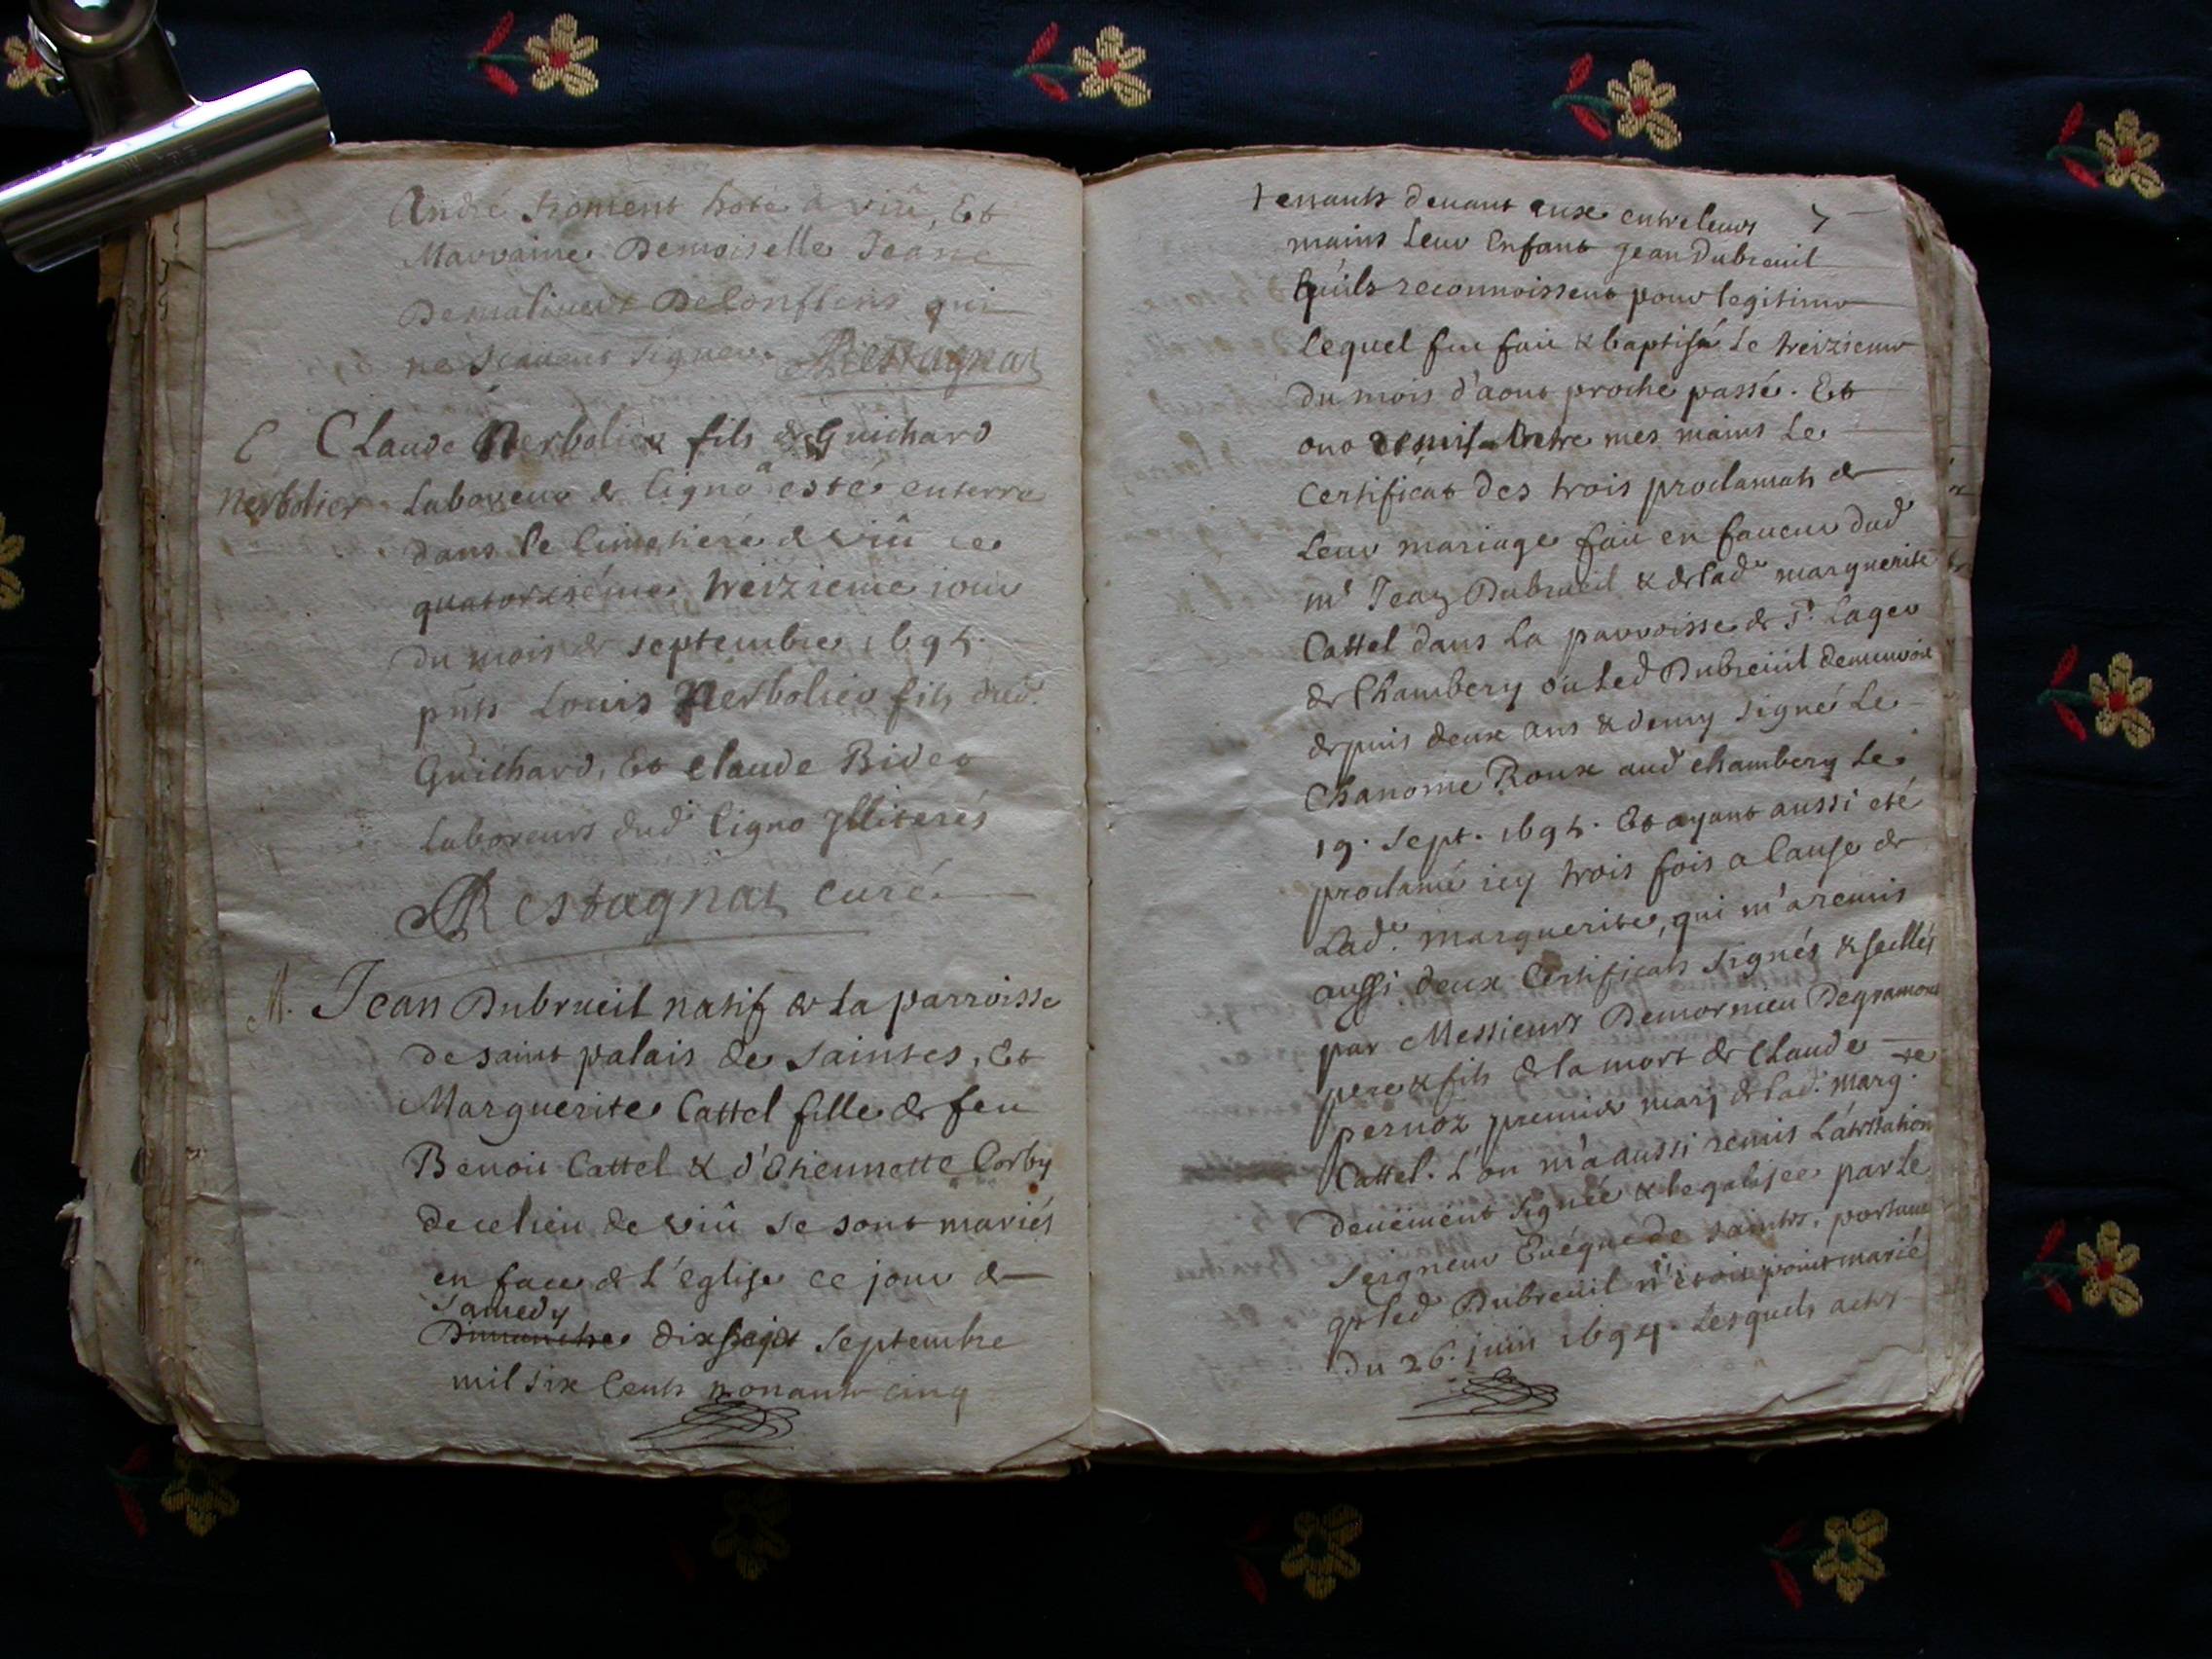 André froment hote a viû, Et
Marraine Demoiselle Jeane
Demalivert Deconflens qui
ne scavent signer. Restagnat
E Claude Nerbolier fils de Guichard
Nerbolier Laboreur de Cigno a esté enterré
dans le Cimetiere de viû ce
quatorzième treizieme jour
du mois de septembre 1695.
pñts Louis Nerbolier fils dud.
Guichard, Et Claude Bidet
Laboreurs dud. Cigno Jlliterés
Restagnat curé.
M. Jean Dubrueil natif de La parroisse
de saint palais de Saintes, Et
Marguerite Cattel fille de feu
Benoit Cattel & d'Etiennette Corby
de ce lieu de viû se sont mariés
en face de L'eglise ce jour de
Samedy
Dimanche dixsept Septembre
mil six Cents nonante cinq
tenants devant eux entre leurs 7
mains Leur Enfant Jean Dubreuil
qu'ils reconnoissent pour legitime
Lequel fut fait & baptisé Le treizieme
du mois d'aout proche passé. Et
ont remis entre mes mains Le
Certificat des trois proclamats de
Leur mariage fait en faveur dud
mr Jean Dubrueil & de lade marguerite
Cattel dans La parroisse de St. Lager
de Chambery ou Led Dubreüil demeuroit
depuis deux ans & demy signé Le
Chanoine Roux aud chambery Le
19. Sept. 1695. Et ayant aussi eté
proclamé icy trois fois a Cause de
Lade. marguerite, qui m'a remis
aussi deux Certificats signés & scellés
par Messieurs Demornieu Degramont
pere & fils de la mort de Claude
pernoz premier mary de lad. marg.te
Cattel. L'on m'a aussi remis L'atestation
deuëment signée & legalisee par Le
Seigneur Evéque de saintes, portant
q led Dubreuil n'étoit point marié
du 26. juin 1694. Lesquels actes